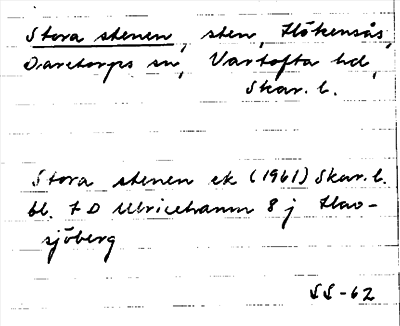 Stora stenen, sten, Hökensås,
Daretorps sn, Vartofta hd,
Skar. l.
Stora stenen ek (1961) Skar. l.
bl. 7 D Ulricehamn 8 j Hav-
sjöberg
SS-62